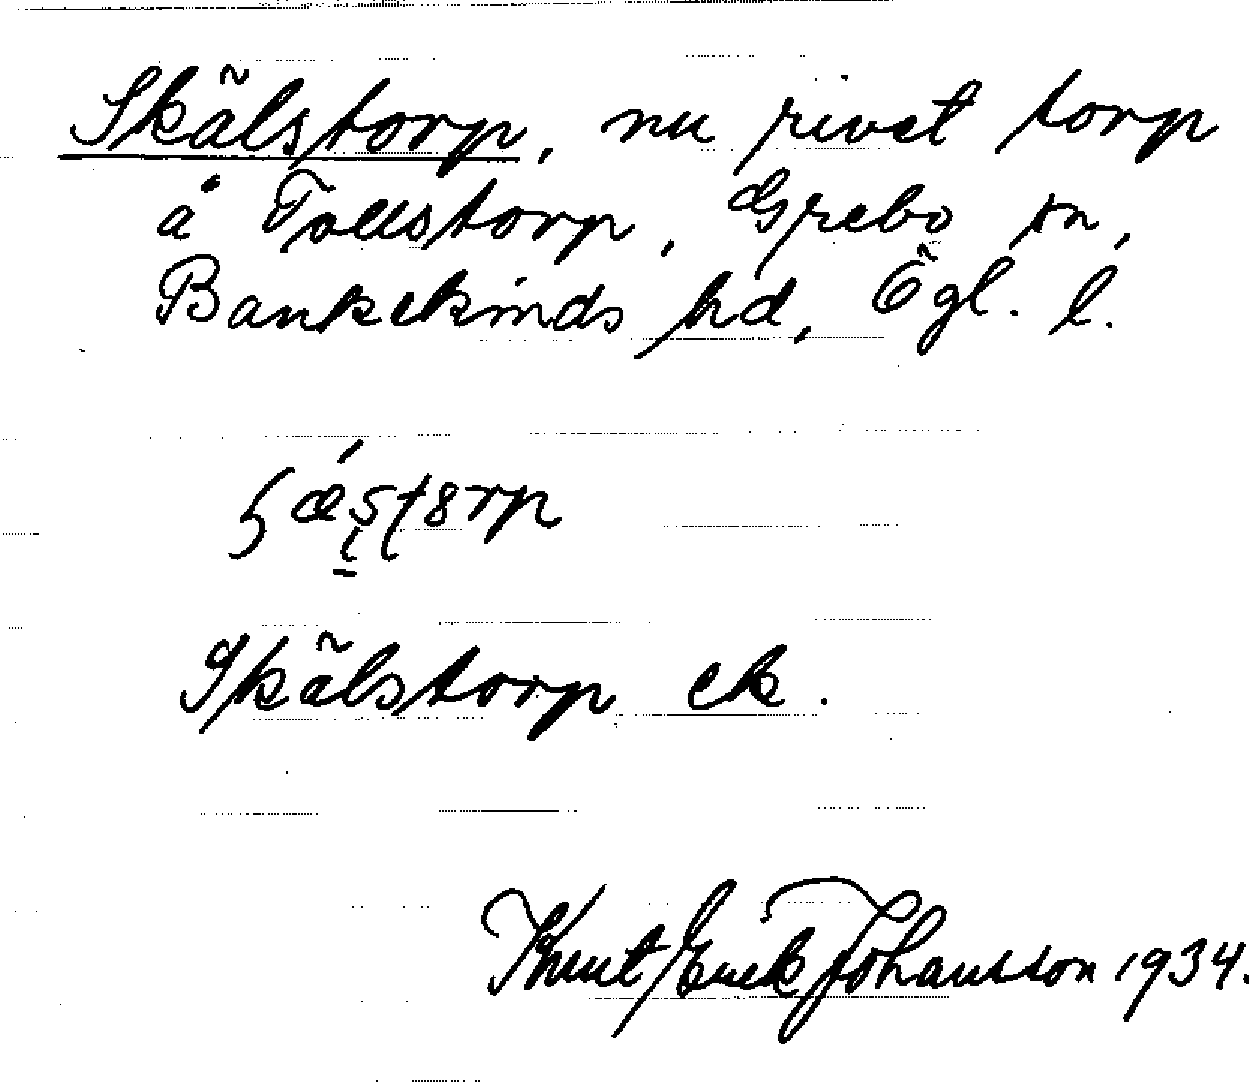 Skälstorp, nu rivet torp
å Tollstorp, Grebo sn,
Bankekinds hd, Ögl. l.
Skälstorp ek.
Knut Erik Johansson 1934.